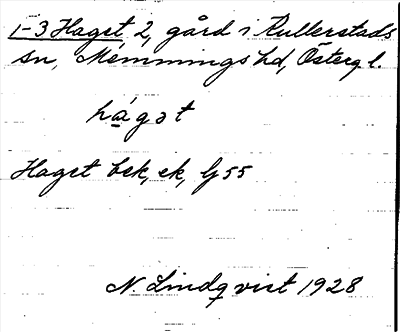 1-3 Haget, 2, gård i Kullerstads
sn, Memmings hd, Östergl.
hágət
Haget bek, ek, Gj 55
N. Lindqvist 1928